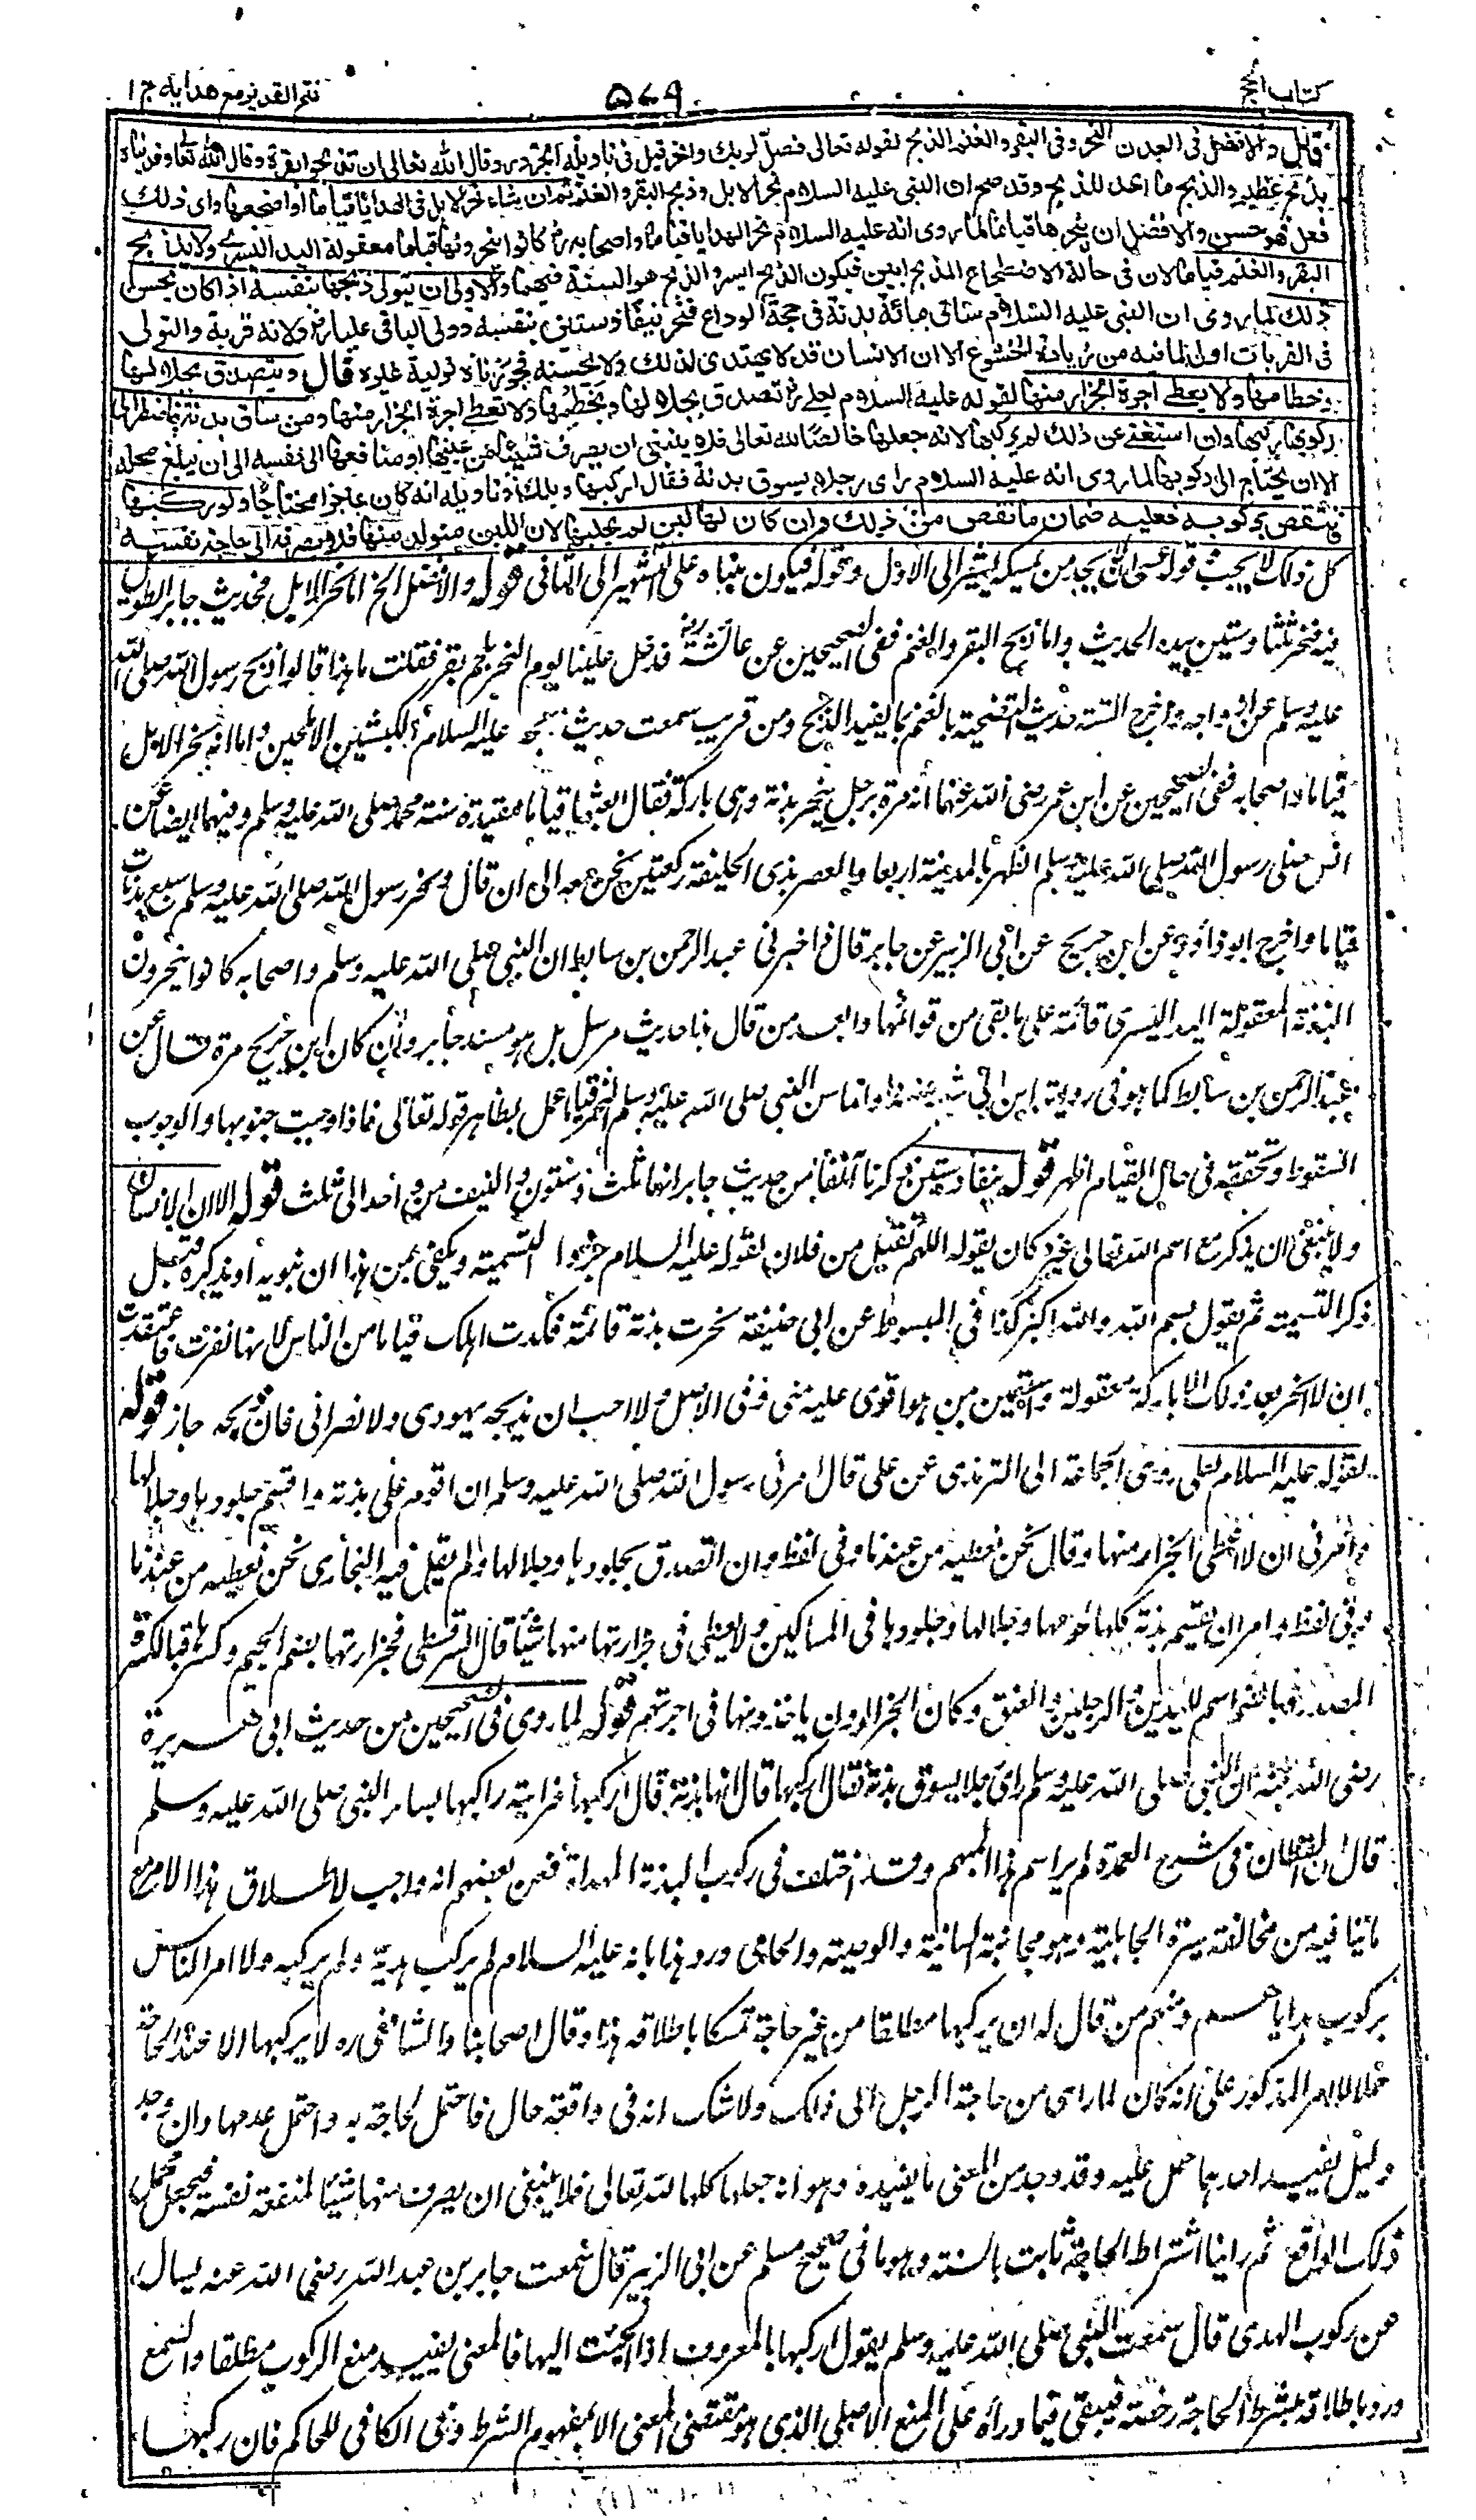 كتاب الحج
٥٧٩
فتح القدير مع هداية ج ١
قال والافضل فى البدن النحر وفى البقر والغنم الذبح لقوله تعالى فصل لربك وانحر قيل فى تاويله الجزور وقال الله تعالى ان تذبحوا بقرة وقال الله تعالى وفديناه
بذبح عظيم والذبح ما اعد للذبح وقد صح ان النبى عليه السلام نحر الابل وذبح البقر والغنم ثم ان شاء نحر الابل فى الهدايا قياما او اضجعها واى ذلك
فعل فهو حسن والافضل ان ينحرها قياما لما روى انه عليه السلام نحر الهدايا قياما واصحابه رض كانوا ينحرونها قياما معقولة اليد اليسرى ولا يذبح
البقر والغنم قياما لان فى حالة الاضطجاع المذبح ابين فيكون الذبح ايسر والذبح هو السنة فيهما والاولى ان يتولى ذبحها بنفسه اذا كان يحسن
ذلك لما روى ان النبى عليه السلام ساق مائة بدنة فى حجة الوداع فنحر نيفا وستين بنفسه وولى الباقى عليا رض ولانه قربة والتولى
فى القربات اولى لما فيه من زيادة الخشوع الا ان الانسان قد لا يهتدى لذلك ولا يحسنه فجوزناه تولية غيره قال ويتصدق بجلالها
وخطامها ولا يعطى اجرة الجزار منها لقوله عليه السلام لعلى رض تصدق بجلالها وبخطمها ولا تعط اجرة الجزار منها ومن ساق بدنة فاضطر الى
ركوبها ركبها وان استغنى عن ذلك لم يركبها لانه جعلها خالصا لله تعالى فلا ينبغى ان يصرف شيئا من عينها او منافعها الى نفسه الى ان يبلغ محله
الا ان يحتاج الى ركوبها لما روى انه عليه السلام راى رجلا يسوق بدنة فقال اركبها ويلك وتاويله انه كان عاجزا محتاجا ولو ركبها
فانتقص بركوبه فعليه ضمان ما نقص من ذلك وان كان لها لبن لم يحلبها لان اللبن متولد منها فلا يصرفه الى حاجة نفسه
كل ذلك لا يجب قوله عسى ان لا يجد من يمسكه يشير الى الاول وقوله فيكون مبناه على التشهير الى الثانى قوله والافضل الخ اما نحر الابل فحديث جابر الطويل
فيه فنحر ثلثا وستين بيده الحديث واما ذبح البقر والغنم ففى الصحيحين عن عائشة رض فدخل علينا يوم النحر بلحم بقر فقلت ما هذا قالوا ذبح رسول الله صلى الله
عليه وسلم عن ازواجه واخرج الستة حديث التضحية بالغنم بما يفيد الذبح ومن قريب سمعت حديث ذبحه عليه السلام الكبشين الاملحين واما انه نحر الابل
قياما واصحابه ففى الصحيحين عن ابن عمر رضى الله عنهما انه مر برجل ينحر بدنة وهى باركة فقال ابعثها قياما مقيدة سنة محمد صلى الله عليه وسلم وفيهما ايضا عن
انس صلى رسول الله صلى الله عليه وسلم الظهر بالمدينة اربعا والعصر بذى الحليفة ركعتين نحن معه الى ان قال ونحر رسول الله صلى الله عليه وسلم سبع بدنات
قياما واخرج ابو داؤد عن ابن جريج عن ابى الزبير عن جابر قال واخبرنى عبد الرحمن بن سابط ان النبى صلى الله عليه وسلم واصحابه كانوا ينحرون
البدنة المعقولة اليد اليسرى قائمة على ما بقى من قوائمها وابعد من قال هذا حديث مرسل بل هو مسند جابر وان كان ابن جريج مرة قال عن
عبد الرحمن بن سابط كما هو فى رواية ابن ابى شيبة عنه هذا وانما سن النبى صلى الله عليه وسلم النحر قياما عملا بظاهر قوله تعالى فاذا وجبت جنوبها والوجوب
السقوط وتحققه فى حال القيام اظهر قوله نيفا وستين ذكرنا آنفا من حديث جابر انها ثلث وستون والنيف من واحد الى ثلث قوله الا ان الانسان
ولا ينبغى ان يذكر مع اسم الله تعالى غيره كان يقول اللهم تقبل من فلان لقوله عليه السلام جردوا التسمية ويكفى عن هذا ان ينويه او يذكره قبل
ذكر التسمية ثم يقول بسم الله والله اكبر كذا فى المبسوط عن ابى حنيفة نحرت بدنة قائمة فكدت اهلك قياما من الناس لانها نفرت فاعتقدت
ان لا انحر بعد ذلك الا باركة معقولة واستعين بمن هو اقوى عليه منى وفى الاصل ولا احب ان يذبحه يهودى ولا نصرانى فان ذبحه جاز قوله
لقوله عليه السلام لعلى روى الجماعة الا الترمذى عن على قال امرنى رسول الله صلى الله عليه وسلم ان اقوم على بدنة واقسم جلودها وجلالها
وامرنى ان لا اعطى الجزار منها وقال نحن نعطيه من عندنا وفى لفظ وان اتصدق بجلودها وجلالها ولم يقل فيه البخارى نحن نعطيه من عندنا
وفى لفظ وامره ان يقسم بدنة كلها لحومها وجلالها وجلودها فى المساكين ولا يعطى فى جزارتها منها شيئا قال السرقسطى فجزارتها بضم الجيم وكسرها فبالكسر
المصدر وبالضم اسم لليدين والرجلين والعنق وكان الجزارون ياخذونها فى اجرتهم قوله لما روى فى الصحيحين من حديث ابى هريرة
رضى الله عنه ان النبى صلى الله عليه وسلم راى رجلا يسوق بدنة فقال اركبها قال انها بدنة قال اركبها فرايته راكبها يساير النبى صلى الله عليه وسلم
قال ابن القطان فى شرح العمدة لم ير اسم هذا المبهم وقد اختلف فى ركوب البدنة المهداة فعن بعضهم انه واجب لاطلاق هذا الامر مع
ما فيه من مخالفة سيرة الجاهلية وهو مجانبة السائبة والوصيلة والحامى ورد هذا بانه عليه السلام لم يركب هديه ولم يركبه ولا امر الناس
بركوب هداياهم ومنهم من قال له ان يركبها مطلقا من غير حاجة تمسكا باطلاقه هذا وقال اصحابنا والشافعى ره لا يركبها الا عند الحاجة
حملا للامر المذكور على انه كان لما راى من حاجة الرجل الى ذلك ولا شك انه فى واقعة حال فاحتمل الحاجة به واحتمل عدمها وان وجد
دليل يفيد احدهما حمل عليه وقد وجد من المعنى ما يفيده وهو انه جعلها كلها لله تعالى فلا ينبغى ان يصرف منها شيئا لمنفعة نفسه فيجعل محمل
ذلك الواقع ثم راينا اشتراط الحاجة ثابت بالسنة وهو ما فى صحيح مسلم عن ابى الزبير قال سمعت جابر بن عبد الله رضى الله عنه يسال
عن ركوب الهدى قال سمعت النبى صلى الله عليه وسلم يقول اركبها بالمعروف اذا الجئت اليها فالمعنى يفيد منع الركوب مطلقا والسمع
ورد باطلاقه بشرط الحاجة رخصة فيبقى فيما وراءه على المنع الاصلى الذى هو مقتضى المعنى الا بمفهوم الشرط وفى الكافى للحاكم فان ركبها